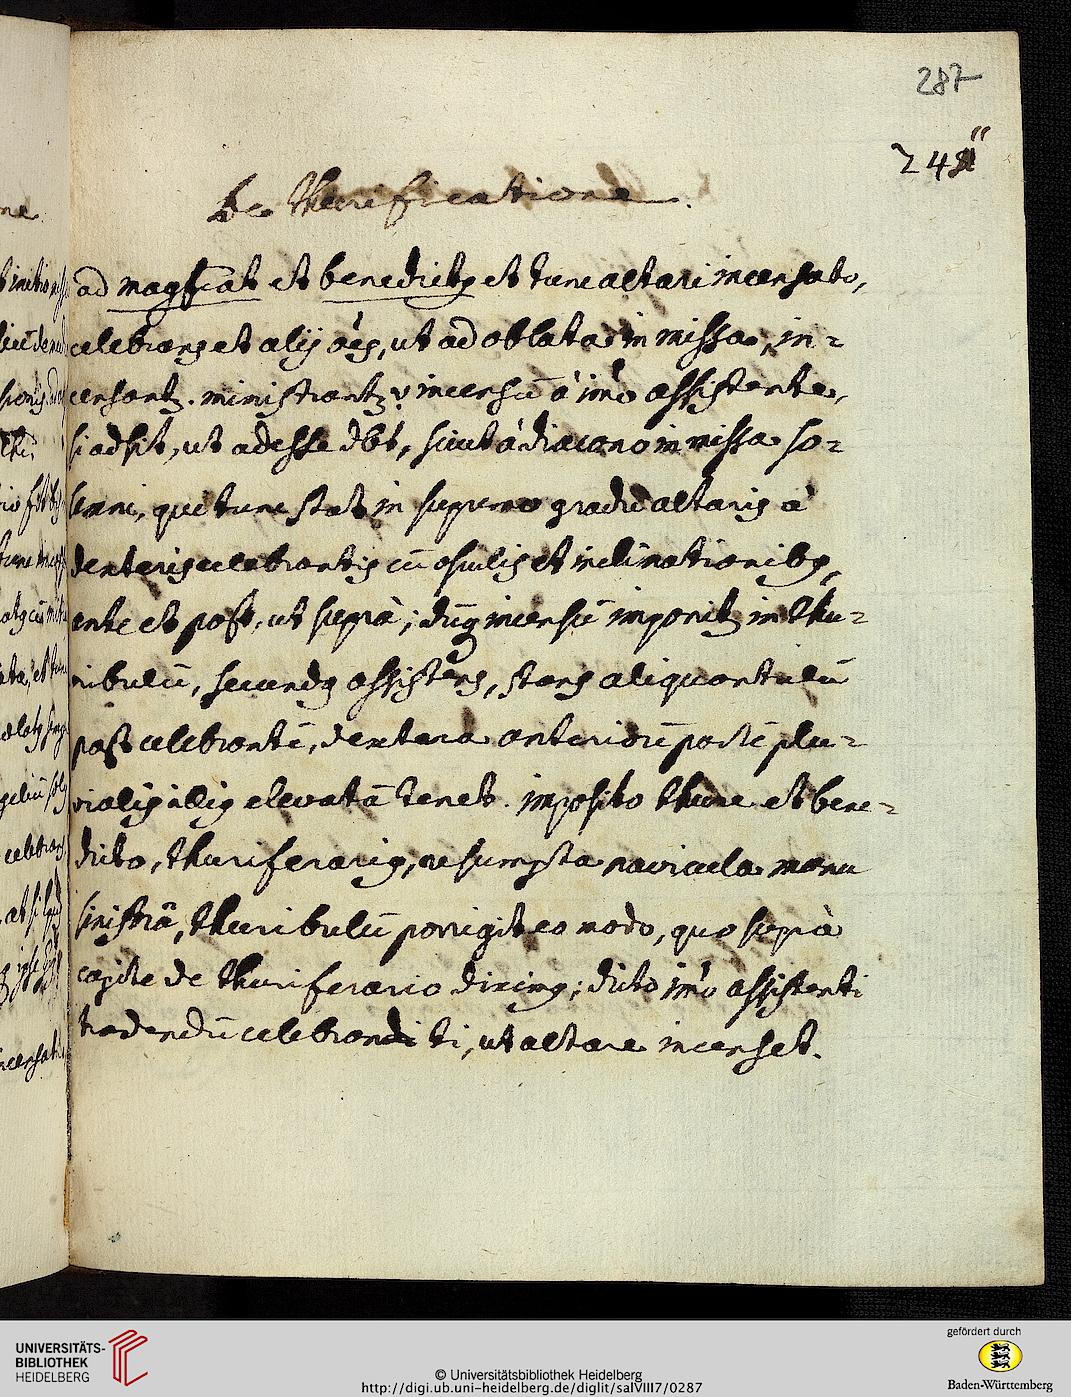 287
248
De thurificatione.
ad magficat et benedictq et tunc altari incensato,
celebrans et alij oēs, ut ad oblata in missa, in=
censantz. ministrantz incensū à imo assistente,
si adsit, ut adesse dbt, sicut à diacono in missa so=
lemni, qui tunc stat in supremo gradu altaris à
dexteris celebrantis cū osculis et inclinationibq,
ante et post, ut suprà; dūq incensū imponitz in thu=
ribulū, secundq assistens, stans aliquantulū
post celebrantē, dextera anteriorē partē plu=
vialis illiq elevatā tenet. imposito thure et bene=
dicto, thuriferariq, resumpta navicula manu
sinistrâ, thuribulū porrigit eo modo, quo suprà
capite de thuriferario diximq; dicto imo assistenti
tradendū celebranditi, ut altare incenset.
UNIVERSITÄTS-
BIBLIOTHEK
HEIDELBERG
© Universitätsbibliothek Heidelberg
http://digi.ub.uni-heidelberg.de/diglit/salVIII7/0287
gefördert durch
Baden-Württemberg